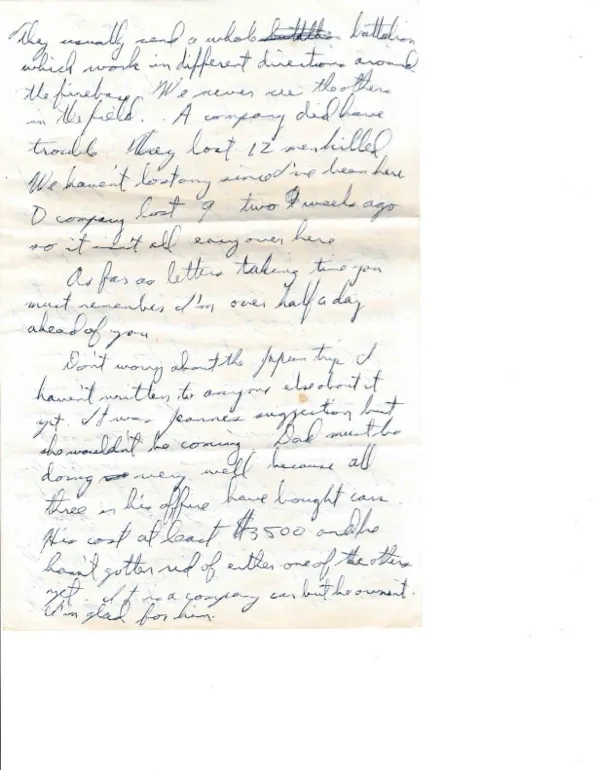 They usually send a whole battalion
which work in different directions around
the firebase. We never see the others
in the field. A company did have
trouble. They lost 12 men killed
We haven't lost any since I've been here
D company lost 9 two weeks ago
so it isn't all easy over here
As far as letters taking time you
must remember I'm over half a day
ahead of you.
Don't worry about the Japan trip I
haven't written to anyone else about it
yet. It was Jeanne's suggestion but
she wouldn't be coming Dad must be
doing very well because all
three in his office have bought cars
His cost at least $3500 and he
hasn't gotten rid of either one of the others
yet. It is a company car but he owns it.
I'm glad for him.